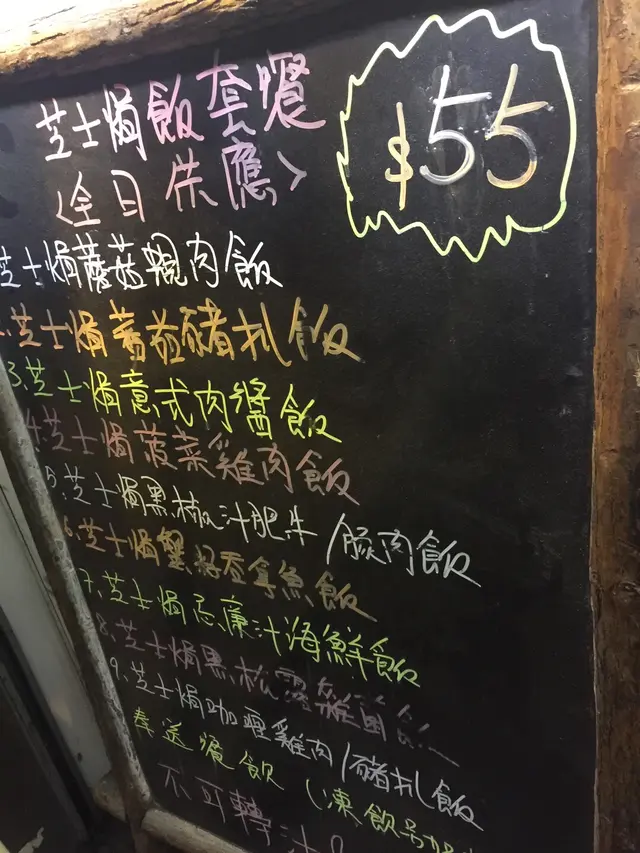 芝士焗飯套餐
$55
<全日供應>
芝士焗蘑菇雞肉飯
芝士焗蕃茄豬扒飯
3.芝士焗意式肉醬飯
4.芝士焗菠菜雞肉飯
5.芝士焗黑椒汁肥牛/豚肉飯
6.芝士焗蟹籽吞拿魚飯
7.芝士焗忌廉汁海鮮飯
8.芝士焗黑松露雜菌飯
9.芝士焗咖喱雞肉/豬扒飯
奉送餐飲(凍飲另加
不可轉汁